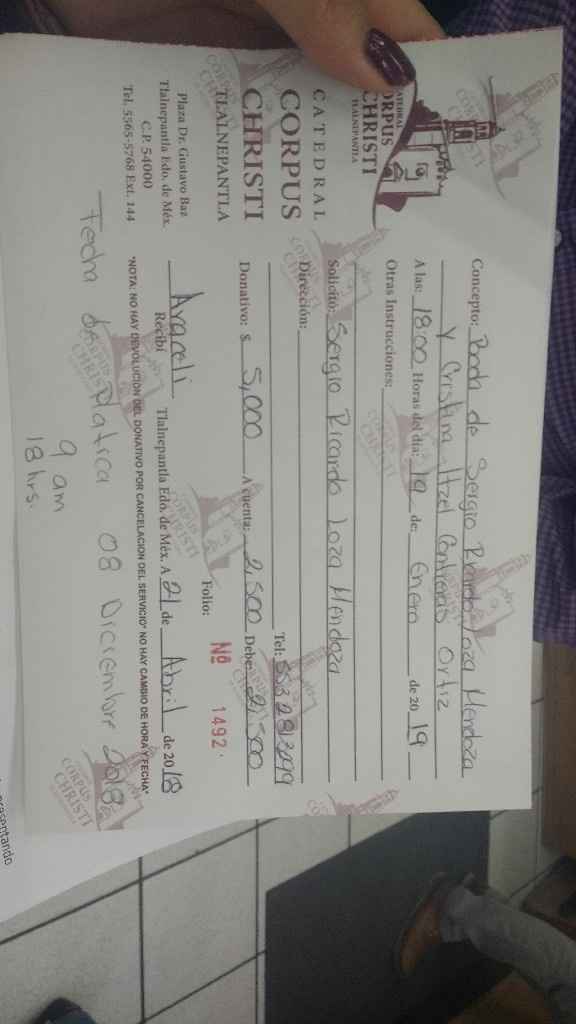 CATEDRAL
CORPUS
CHRISTI
TLALNEPANTLA
CATEDRAL
CORPUS
CHRISTI
TLALNEPANTLA
Plaza Dr. Gustavo Baz
Tlalnepantla Edo. de Méx.
C.P. 54000
Tel. 5565-5768 Ext. 144
Concepto: Boda de Sergio Ricardo Loza Mendoza
Y Cristina Itzel Contreras Ortiz
A las: 18:00 Horas del día: 19 de: Enero de 2019
Otras Instrucciones:
Solicitó: Sergio Ricardo Loza Mendoza
Dirección:
Tel: 5532813299
Donativo: $ 5,000 A cuenta: 2,500 Debe: 2,500
Folio: Nº 1492
Araceli Tlalnepantla Edo. de Méx. A 21 de Abril de 2018
Recibí
"NOTA: NO HAY DEVOLUCION DEL DONATIVO POR CANCELACION DEL SERVICIO" NO HAY CAMBIO DE HORA Y FECHA"
Fecha de Platica 08 Diciembre 2018
9 am
18 hrs.